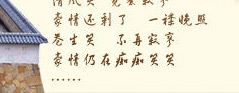 清风笑 竟惹寂寥
豪情还剩了 一襟晚照
苍生笑 不再寂寥
豪情仍在痴痴笑笑
......